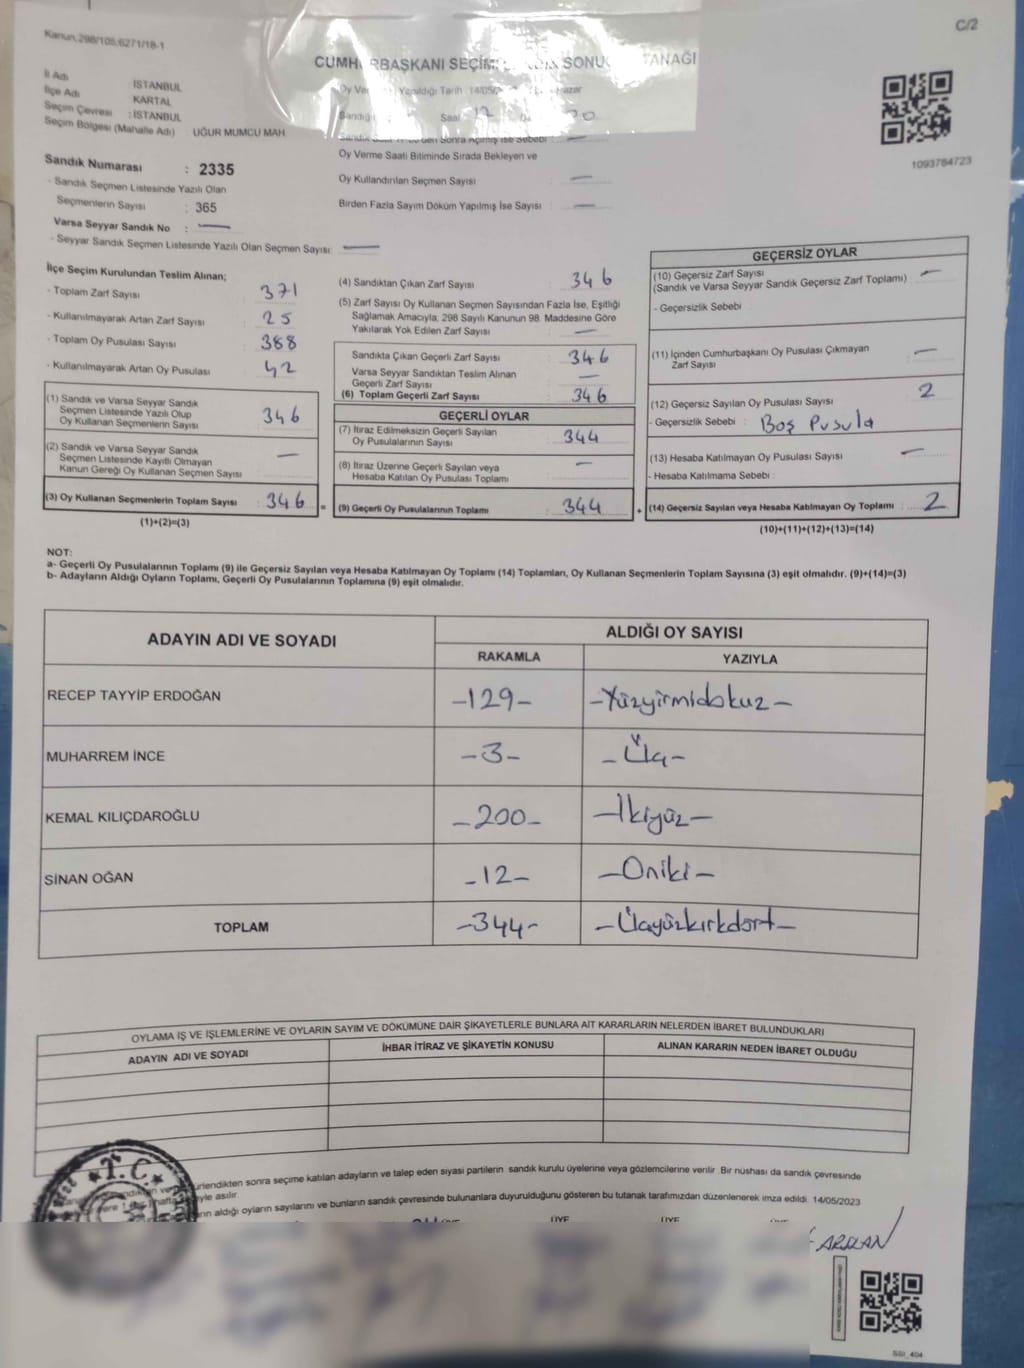 Kanun,298/105,6271/18-1
C/2
CUMH BAŞKANI SEÇİM SONU TANAĞI
İl Adı : İSTANBUL
İlçe Adı : KARTAL
Seçim Çevresi : İSTANBUL
Seçim Bölgesi (Mahalle Adı) UĞUR MUMCU MAH.
Oy Ver Yapıldığı Tarih 14/05/ Pazar
Sandığı Saat 17 00
Sonra Açılmış İse Sebebi : —
Oy Verme Saati Bitiminde Sırada Bekleyen ve
Oy Kullandırılan Seçmen Sayısı —
Birden Fazla Sayım Döküm Yapılmış İse Sayısı : —
1093784723
Sandık Numarası : 2335
- Sandık Seçmen Listesinde Yazılı Olan
Seçmenlerin Sayısı : 365
Varsa Seyyar Sandık No : —
- Seyyar Sandık Seçmen Listesinde Yazılı Olan Seçmen Sayısı: —
İlçe Seçim Kurulundan Teslim Alınan;
- Toplam Zarf Sayısı : 371
- Kullanılmayarak Artan Zarf Sayısı : 25
- Toplam Oy Pusulası Sayısı : 388
- Kullanılmayarak Artan Oy Pusulası : 42
(1) Sandık ve Varsa Seyyar Sandık
Seçmen Listesinde Yazılı Olup
Oy Kullanan Seçmenlerin Sayısı : 346
(2) Sandık ve Varsa Seyyar Sandık
Seçmen Listesinde Kayıtlı Olmayan
Kanun Gereği Oy Kullanan Seçmen Sayısı —
(3) Oy Kullanan Seçmenlerin Toplam Sayısı : 346 =
(1)+(2)=(3)
(4) Sandıktan Çıkan Zarf Sayısı : 346
(5) Zarf Sayısı Oy Kullanan Seçmen Sayısından Fazla İse, Eşitliği
Sağlamak Amacıyla, 298 Sayılı Kanunun 98. Maddesine Göre
Yakılarak Yok Edilen Zarf Sayısı : —
Sandıkta Çıkan Geçerli Zarf Sayısı : 346
Varsa Seyyar Sandıktan Teslim Alınan
Geçerli Zarf Sayısı : —
(6) Toplam Geçerli Zarf Sayısı : 346
GEÇERLİ OYLAR
(7) İtiraz Edilmeksizin Geçerli Sayılan
Oy Pusulalarının Sayısı : 344
(8) İtiraz Üzerine Geçerli Sayılan veya
Hesaba Katılan Oy Pusulası Toplamı : —
(9) Geçerli Oy Pusulalarının Toplamı : 344 +
GEÇERSİZ OYLAR
(10) Geçersiz Zarf Sayısı —
(Sandık ve Varsa Seyyar Sandık Geçersiz Zarf Toplamı)
- Geçersizlik Sebebi :
(11) İçinden Cumhurbaşkanı Oy Pusulası Çıkmayan
Zarf Sayısı —
(12) Geçersiz Sayılan Oy Pusulası Sayısı : 2
- Geçersizlik Sebebi : Boş Pusula
(13) Hesaba Katılmayan Oy Pusulası Sayısı : —
- Hesaba Katılmama Sebebi :
(14) Geçersiz Sayılan veya Hesaba Katılmayan Oy Toplamı : 2
(10)+(11)+(12)+(13)=(14)
NOT:
a- Geçerli Oy Pusulalarının Toplamı (9) ile Geçersiz Sayılan veya Hesaba Katılmayan Oy Toplamı (14) Toplamları, Oy Kullanan Seçmenlerin Toplam Sayısına (3) eşit olmalıdır. (9)+(14)=(3)
b- Adayların Aldığı Oyların Toplamı, Geçerli Oy Pusulalarının Toplamına (9) eşit olmalıdır.
ADAYIN ADI VE SOYADI
ALDIĞI OY SAYISI
RAKAMLA YAZIYLA
RECEP TAYYİP ERDOĞAN -129- -Yüzyirmidokuz-
MUHARREM İNCE -3- -Üç-
KEMAL KILIÇDAROĞLU -200- -İkiyüz-
SİNAN OĞAN -12- -Oniki-
TOPLAM -344- -Üçyüzkırkdört-
OYLAMA İŞ VE İŞLEMLERİNE VE OYLARIN SAYIM VE DÖKÜMÜNE DAİR ŞİKAYETLERLE BUNLARA AİT KARARLARIN NELERDEN İBARET BULUNDUKLARI
ADAYIN ADI VE SOYADI İHBAR İTİRAZ VE ŞİKAYETİN KONUSU ALINAN KARARIN NEDEN İBARET OLDUĞU
T.C.
sonra seçime katılan adayların ve talep eden siyasi partilerin sandık kurulu üyelerine veya gözlemcilerine verilir. Bir nüshası da sandık çevresinde
asılır.
aldığı oyların sayılarını ve bunların sandık çevresinde bulunanlara duyurulduğunu gösteren bu tutanak tarafımızdan düzenlenerek imza edildi. 14/05/2023
ÜYE ÜYE
ARSLAN
SSI_404